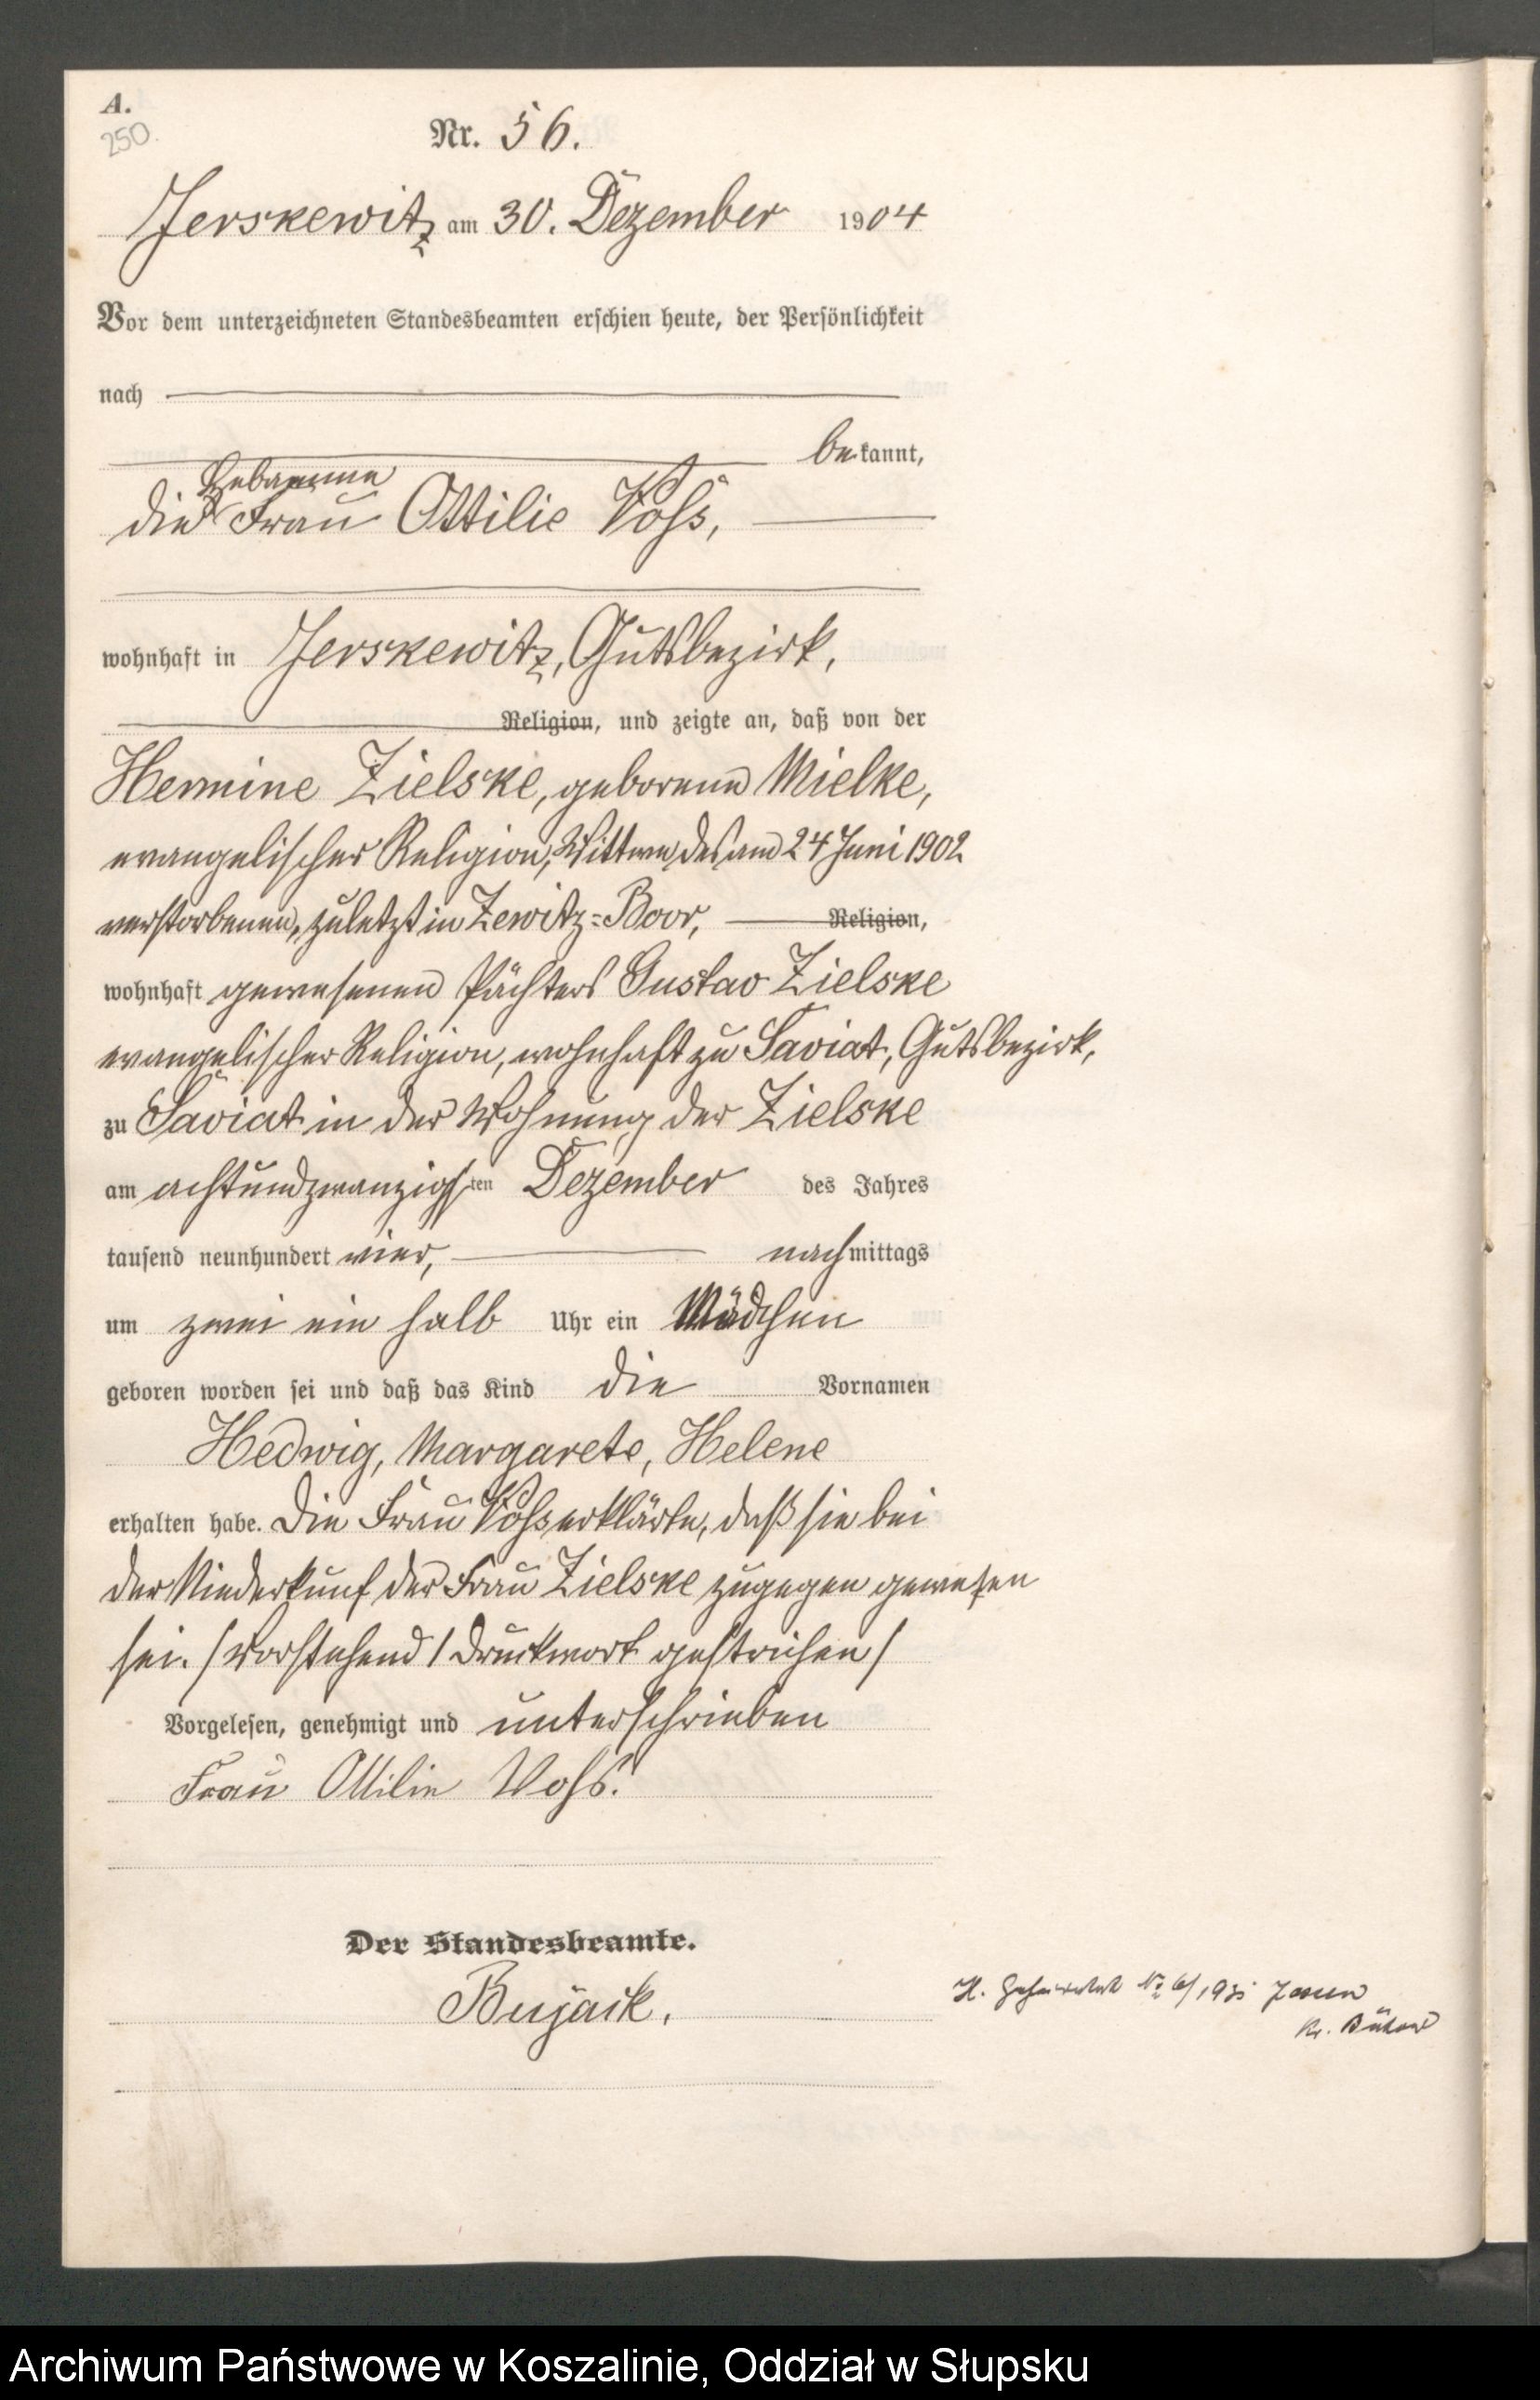 A.
250.
Nr. 56.
Jerskewitz am 30. Dezember 1904
Vor dem unterzeichneten Standesbeamten erschien heute, der Persönlichkeit
nach
bekannt,
Hebamme
die Frau Ottilie Voss,
wohnhaft in Jerskewitz, Gutsbezirk,
Religion, und zeigte an, daß von der
Hermine Zielske, geborene Mielke,
evangelischer Religion, Wittwe des am 24 Juni 1902
verstorbenen, zuletzt in Zewitz=Boor, Religion,
wohnhaft gewesenen Pächters Gustav Zielske
evangelischer Religion, wohnhaft zu Saviat, Gutsbezirk,
zu Saviat in der Wohnung der Zielske
am achtundzwanzigsten Dezember des Jahres
tausend neunhundert vier, nachmittags
um zwei ein halb Uhr ein Mädchen
geboren worden sei und daß das Kind die Vornamen
Hedwig, Margarete, Helene
erhalten habe. Die Frau Voss erklärte, daß sie bei
der Niederkunf der Frau Zielske zugegen gewesen
sei. /Vorstehend 1 Druckwort gestrichen/
Vorgelesen, genehmigt und unterschrieben
Frau Ottilie Voss.
Der Standesbeamte.
Bujack.
H. Geheiratet № 6/1935
Kr. Bütow
Archiwum Państwowe w Koszalinie, Oddział w Słupsku